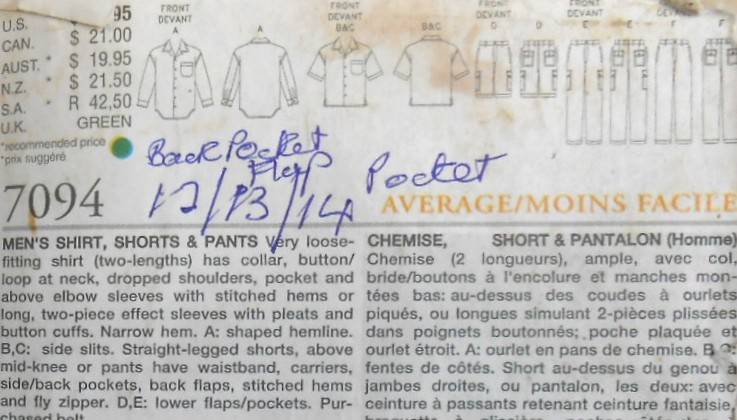 95
U.S.
CAN. $ 21.00
AUST. * $ 19.95
N.Z. * $ 21.50
S.A. * R 42,50
U.K. GREEN
*recommended price
*prix suggéré
FRONT
DEVANT
A
A
FRONT
DEVANT
B&C
B&C
FRONT
DEVANT
D
D
FRONT
DEVANT
E
E
FRONT
DEVANT
F
F
Back Pocket
Flap
Pocket
12/13/14
7094
AVERAGE/MOINS FACILE
MEN'S SHIRT, SHORTS & PANTS Very loose-
fitting shirt (two-lengths) has collar, button/
loop at neck, dropped shoulders, pocket and
above elbow sleeves with stitched hems or
long, two-piece effect sleeves with pleats and
button cuffs. Narrow hem. A: shaped hemline.
B,C: side slits. Straight-legged shorts, above
mid-knee or pants have waistband, carriers,
side/back pockets, back flaps, stitched hems
and fly zipper. D,E: lower flaps/pockets. Pur-
chased belt.
CHEMISE, SHORT & PANTALON (Homme)
Chemise (2 longueurs), ample, avec col,
bride/boutons à l'encolure et manches mon-
tées bas: au-dessus des coudes à ourlets
piqués, ou longues simulant 2-pièces plissées
dans poignets boutonnés; poche plaquée et
ourlet étroit. A: ourlet en pans de chemise. B,C:
fentes de côtés. Short au-dessus du genou à
jambes droites, ou pantalon, les deux: avec
ceinture à passants retenant ceinture fantaisie,